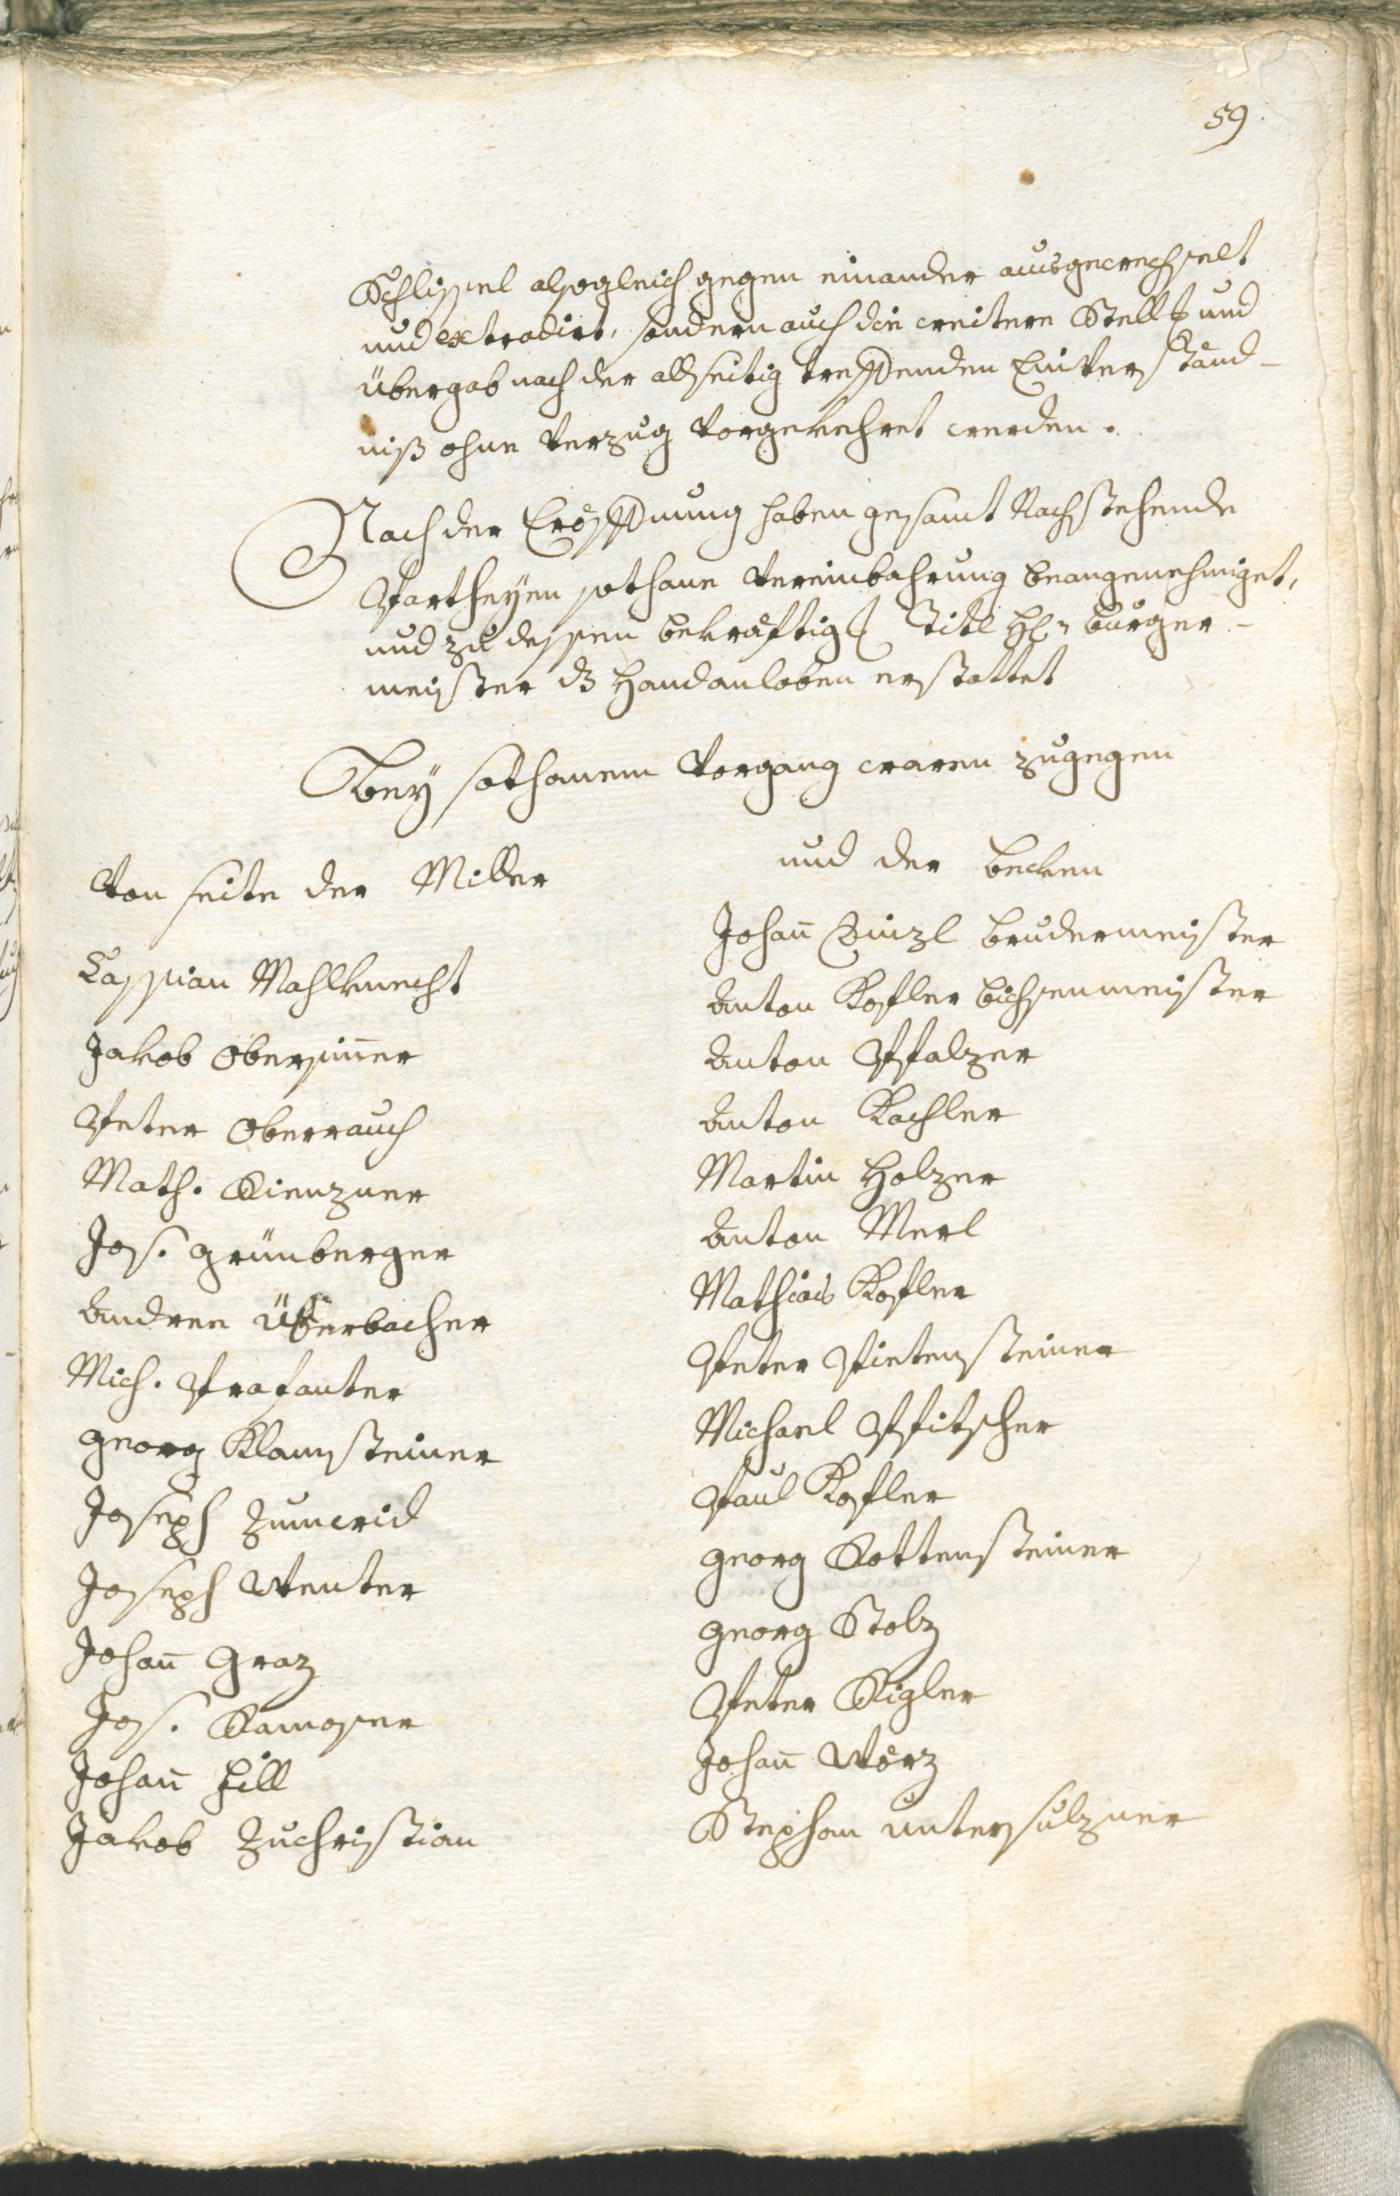 59.
Schlissel alsogleich gegen einander ausgewechselt
und extradirt, sondern auch die weitere Stell- und
Übergab nach der allseitig treffenden Einverständ-
niß ohne Verzug vorgekehret werden.
Nach der Eröffnung haben gesamt Nachstehende
Partheÿen sothane Vereinbahrung beangenehmiget,
und zu dessen bekräftig Titl Hl: Burger-
meister ds Handanloben erstattet
Beÿ sothanem Vorgang waren zugegen
Von seite der Miller
Cassian Mahlknecht
Jakob Oberpinner
Peter Oberrauch
Math. Kienzner
Jos. Grünberger
Andree Überbacher
Mich. Prafanter
Georg Klamsteiner
Joseph Zumwrid
Joseph Venter
Johan̅ Graz
Jos. Ramoser
Johan̅ Hill
Jakob Zuchristian
und der becken
Johan̅ Einzl brudermeister
Anton Kofler bichsenmeister
Anton Pfalzer
Anton Kachler
Martin Holzer
Anton Merl
Mathias Kofler
Peter Pietensteiner
Michael Pfitscher
Paul Kofler
Georg Rottensteiner
Georg Stolz
Peter Rigler
Johan̅ Verz
Stephan untersulzner